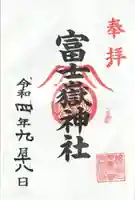 奉拝
富士嶽神社
令和四年九月八日